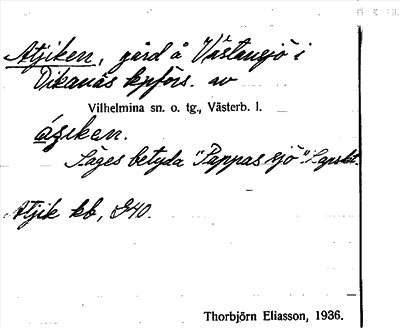 Atjiken, gård å Västansjö i
Dikanäs kpförs. av
Vilhelmina sn. o. tg., Västerb. l.
ásiken.
Säges betyda "Pappas sjö" Lapskt.
Atjik kb, G40.
Thorbjörn Eliasson, 1936.